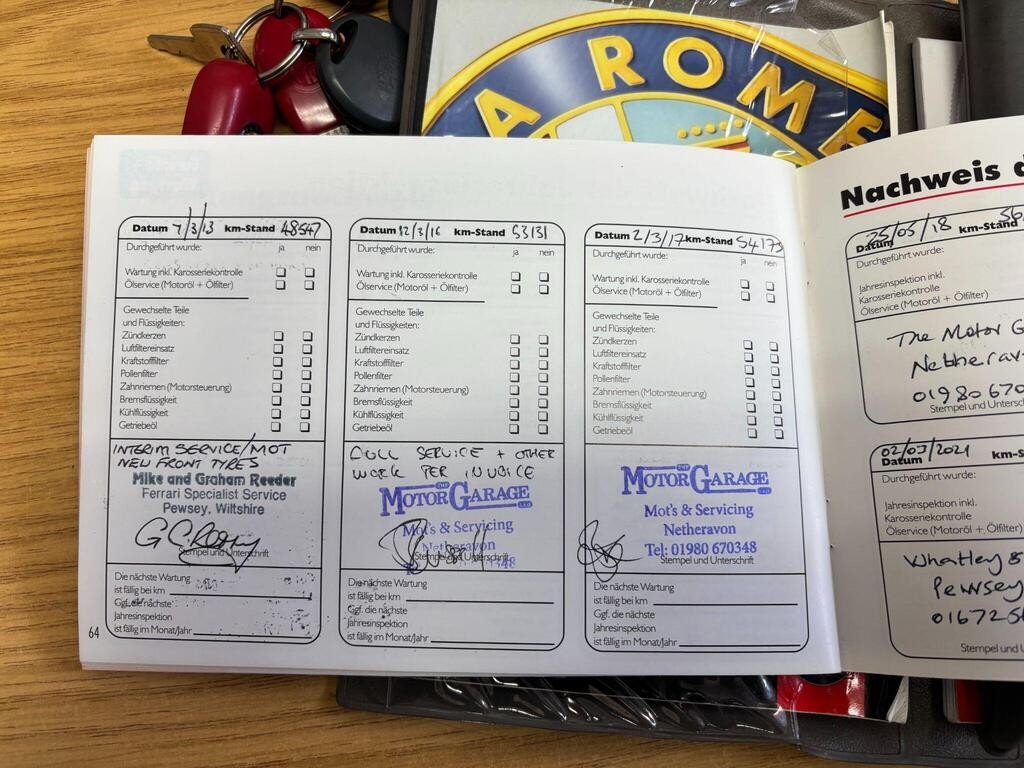 A ROME
Datum 7/3/13 km-Stand 48547
Durchgeführt wurde: ja nein
Wartung inkl. Karosseriekontrolle
Ölservice (Motoröl + Ölfilter)
Gewechselte Teile
und Flüssigkeiten:
Zündkerzen
Luftfiltereinsatz
Kraftstofffilter
Pollenfilter
Zahnriemen (Motorsteuerung)
Bremsflüssigkeit
Kühlflüssigkeit
Getriebeöl
INTERIM SERVICE/MOT
NEW FRONT TYRES
Mike and Graham Reeder
Ferrari Specialist Service
Pewsey, Wiltshire
Stempel und Unterschrift
Die nächste Wartung
ist fällig bei km
Ggf. die nächste
Jahresinspektion
ist fällig im Monat/Jahr
64
Datum 12/3/16 km-Stand 53131
Durchgeführt wurde: ja nein
Wartung inkl. Karosseriekontrolle
Ölservice (Motoröl + Ölfilter)
Gewechselte Teile
und Flüssigkeiten:
Zündkerzen
Luftfiltereinsatz
Kraftstofffilter
Pollenfilter
Zahnriemen (Motorsteuerung)
Bremsflüssigkeit
Kühlflüssigkeit
Getriebeöl
FULL SERVICE + OTHER
WORK PER INVOICE
THE
MOTOR GARAGE LTD
Mot's & Servicing
Netheravon
Stempel und Unterschrift
Die nächste Wartung
ist fällig bei km
Ggf. die nächste
Jahresinspektion
ist fällig im Monat/Jahr
Datum 2/3/17 km-Stand 54173
Durchgeführt wurde: ja nein
Wartung inkl. Karosseriekontrolle
Ölservice (Motoröl + Ölfilter)
Gewechselte Teile
und Flüssigkeiten:
Zündkerzen
Luftfiltereinsatz
Kraftstofffilter
Pollenfilter
Zahnriemen (Motorsteuerung)
Bremsflüssigkeit
Kühlflüssigkeit
Getriebeöl
THE
MOTOR GARAGE LTD
Mot's & Servicing
Netheravon
Tel: 01980 670348
Stempel und Unterschrift
Die nächste Wartung
ist fällig bei km
Ggf. die nächste
Jahresinspektion
ist fällig im Monat/Jahr
Nachweis d
Datum 25/05/18 km-Stand 56
Durchgeführt wurde:
Jahresinspektion inkl.
Karosseriekontrolle
Ölservice (Motoröl + Ölfilter)
The Motor G
Netherav
01980 670
Stempel und Unterschri
Datum 02/03/2021 km-S
Durchgeführt wurde:
Jahresinspektion inkl.
Karosseriekontrolle
Ölservice (Motoröl + Ölfilter)
Whatley &
Pewsey
01672 56
Stempel und U